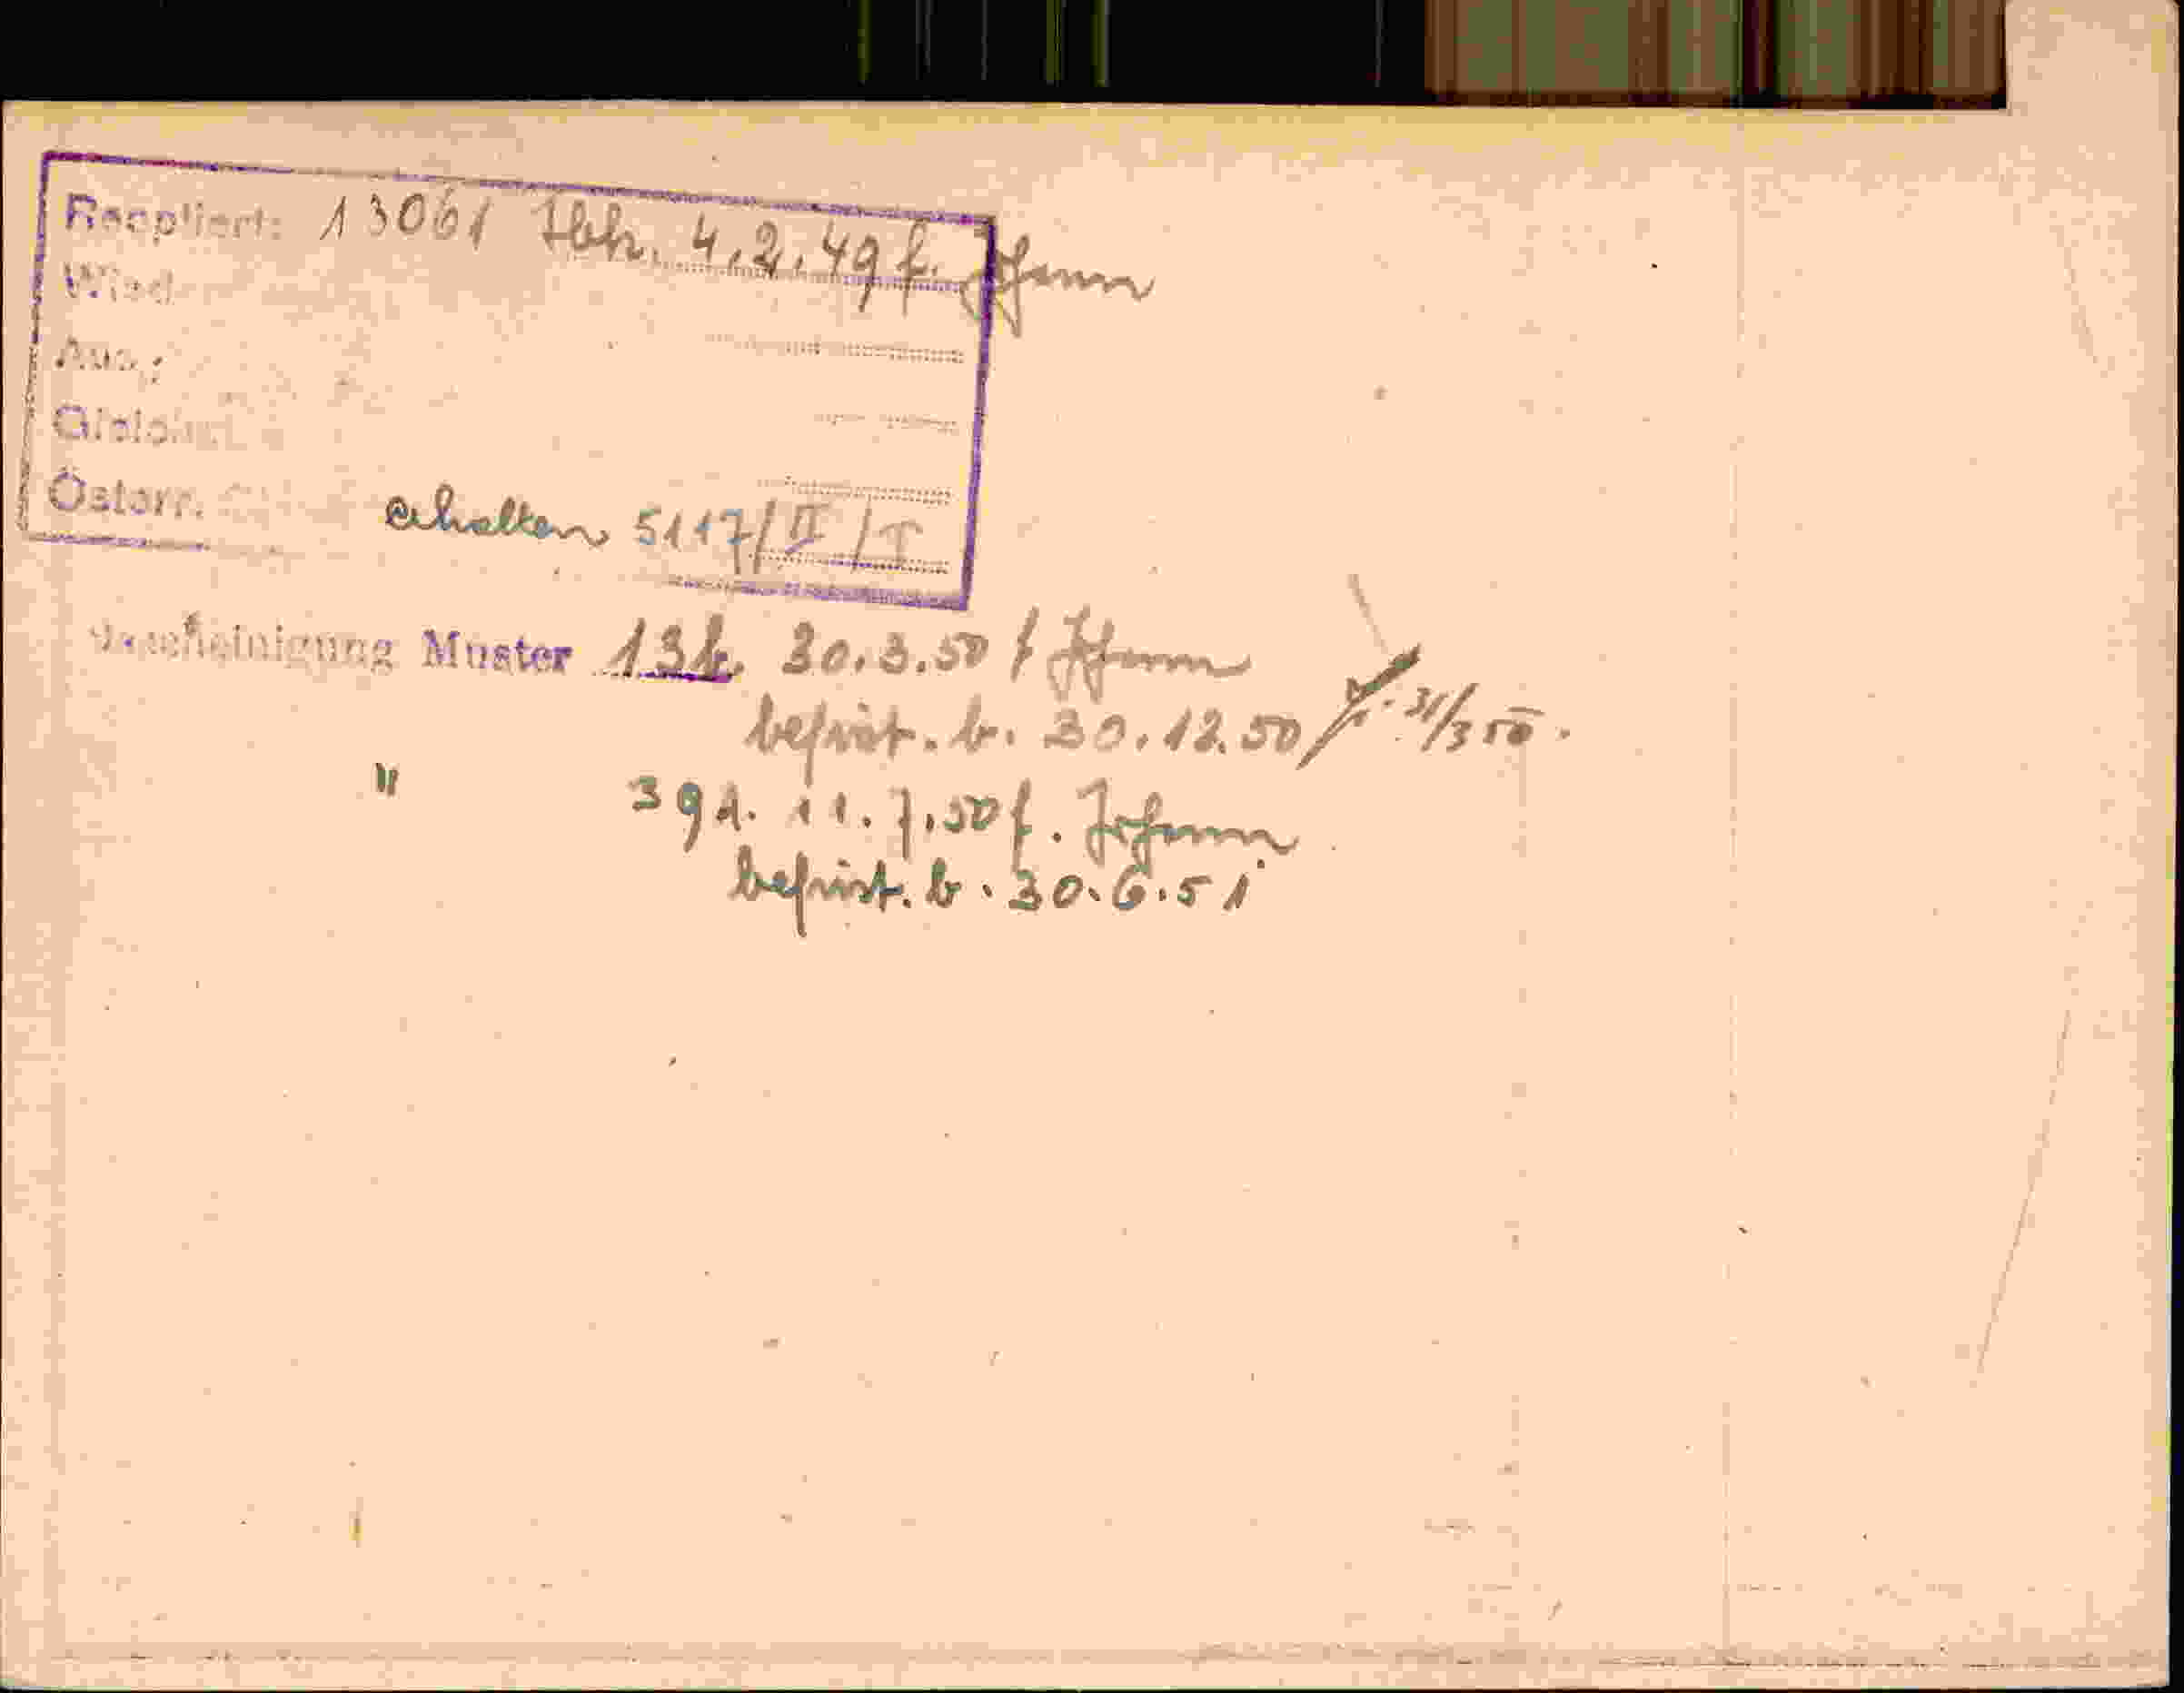 Reeptiert: 13061 Ibk. 4.2.49 f. Johann
Wied
Aus
Gleich
Österr. erhalten 5117/II/T
Bescheinigung Muster 13k. 30.3.50 f Johann
befrist. b. 30.12.50 31/3 50.
" 391. 11.7.50 f. Johann
befrist. b. 30.6.51